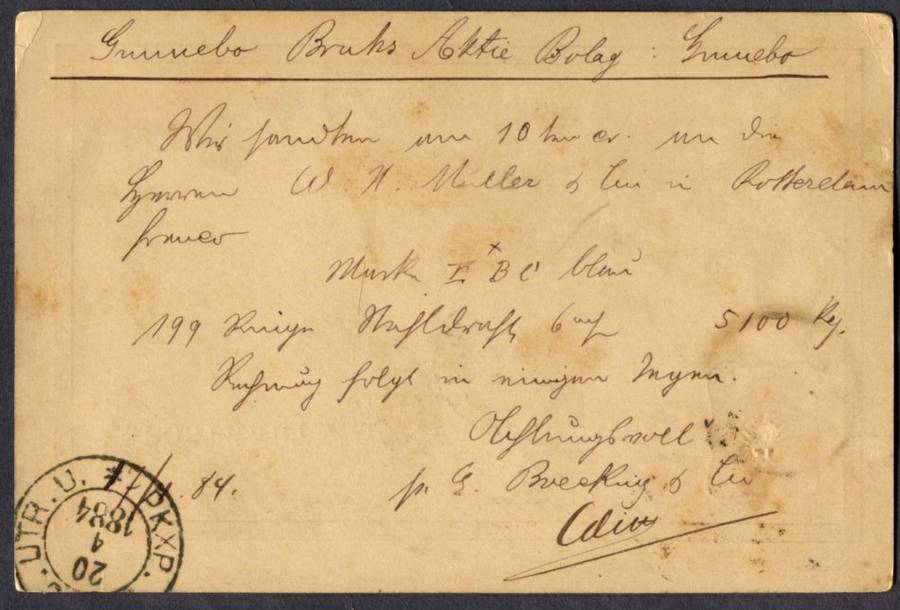 Gunnebo Bruks Aktie Bolag : Gunnebo
Wir sandten am 10ten cr. an die
Herren W. H. Müller & Cie in Rotterdam
franco
Marke BC blau
199 Ringe Stahldraht 5100 Kg.
Rechnung folgt in einigen Tagen.
Achtungsvoll
17/4. 84. p. G. Boecking & Cie
PKXP. UTR. U.
20
4
1884